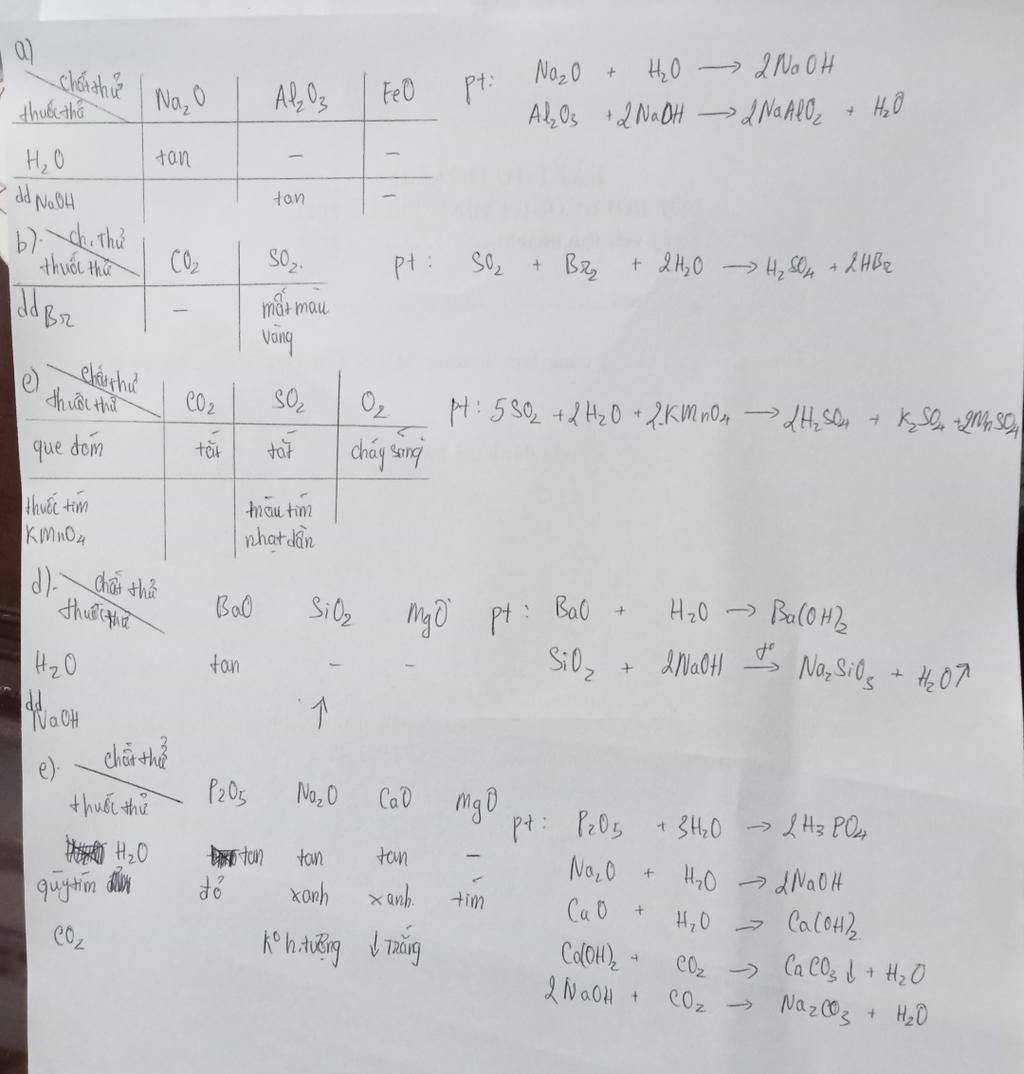 a)
chất thử
thuốc thử Na₂O Al₂O₃ FeO
H₂O tan – –
dd NaOH tan –
pt: Na₂O + H₂O → 2NaOH
Al₂O₃ + 2NaOH → 2NaAlO₂ + H₂O
b). ch. thử
thuốc thử CO₂ SO₂.
dd Br₂ – mất màu
vàng
pt: SO₂ + Br₂ + 2H₂O → H₂SO₄ + 2HBr
c) chất thử
thuốc thử CO₂ SO₂ O₂
que đóm tắt tắt cháy sáng
thuốc tím màu tím
KMnO₄ nhạt dần
pt: 5SO₂ + 2H₂O + 2KMnO₄ → 2H₂SO₄ + K₂SO₄ + 2MnSO₄
d). chất thử
thuốc thử BaO SiO₂ MgO
H₂O tan – –
dd NaOH ↑
pt: BaO + H₂O → Ba(OH)₂
SiO₂ + 2NaOH →(t°) Na₂SiO₃ + H₂O↑
e). chất thử
thuốc thử P₂O₅ Na₂O CaO MgO
H₂O tan tan tan –
qùy tím đỏ xanh xanh. tím
CO₂ k° h.tượng ↓ Trắng
pt: P₂O₅ + 3H₂O → 2H₃PO₄
Na₂O + H₂O → 2NaOH
CaO + H₂O → Ca(OH)₂
Ca(OH)₂ + CO₂ → CaCO₃↓ + H₂O
2NaOH + CO₂ → Na₂CO₃ + H₂O